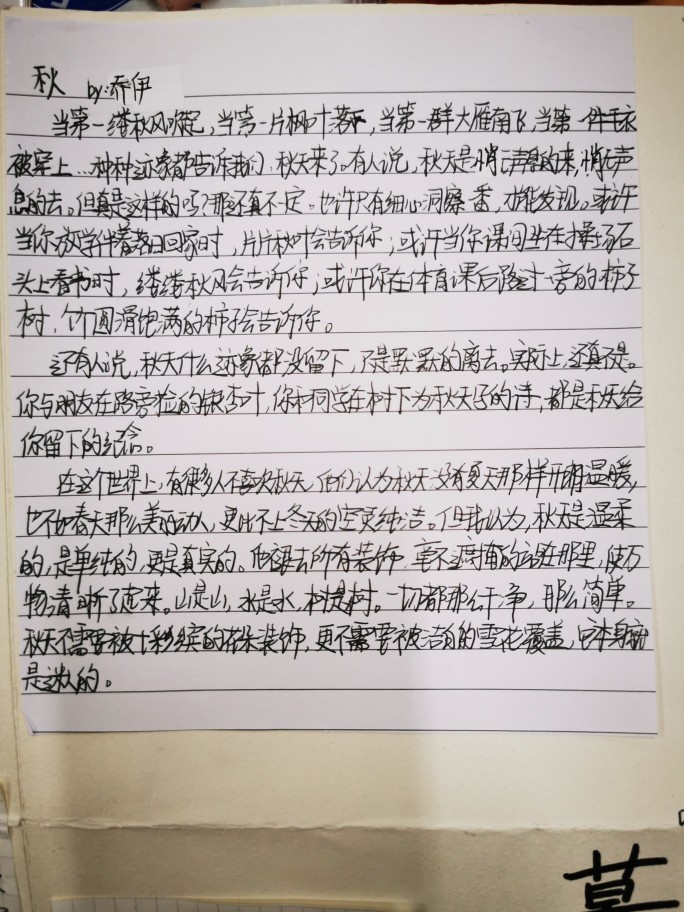 秋 by:乔伊
当第一缕秋风吹起,当第一片枫叶落下,当第一群大雁南飞,当第一件毛衣
被穿上…种种迹象都告诉我们,秋天来了。有人说,秋天是悄无声息的来,悄无声
息的去。但真是这样的吗?那还真不一定。也许只有细心洞察一番,才能发现。或许
当你放学伴着落日回家时,片片秋叶会告诉你;或许当你课间坐在操场石
头上看书时,缕缕秋风会告诉你;或许你在体育课后路过一旁的柿子
树,个个圆滑饱满的柿子会告诉你。
还有人说,秋天什么迹象都没留下,只是默默的离去。实际上,还真不是。
你与朋友在路旁捡的银杏叶,你和同学在树下为秋天写的诗,都是秋天给
你留下的纪念。
在这个世界上,有很多人不喜欢秋天,他们认为秋天没有夏天那样开朗温暖,
也不如春天那么美丽动人,更比不上冬天的空灵纯洁。但我认为,秋天是温柔
的,是单纯的,更是真实的。他褪去所有装饰,毫不遮掩的站在那里,使万
物清晰了起来。山是山,水是水,树是树。一切都那么干净,那么简单。
秋天不需要被五彩缤纷的花朵装饰,更不需要被洁白的雪花覆盖,它本身就
是迷人的。
草